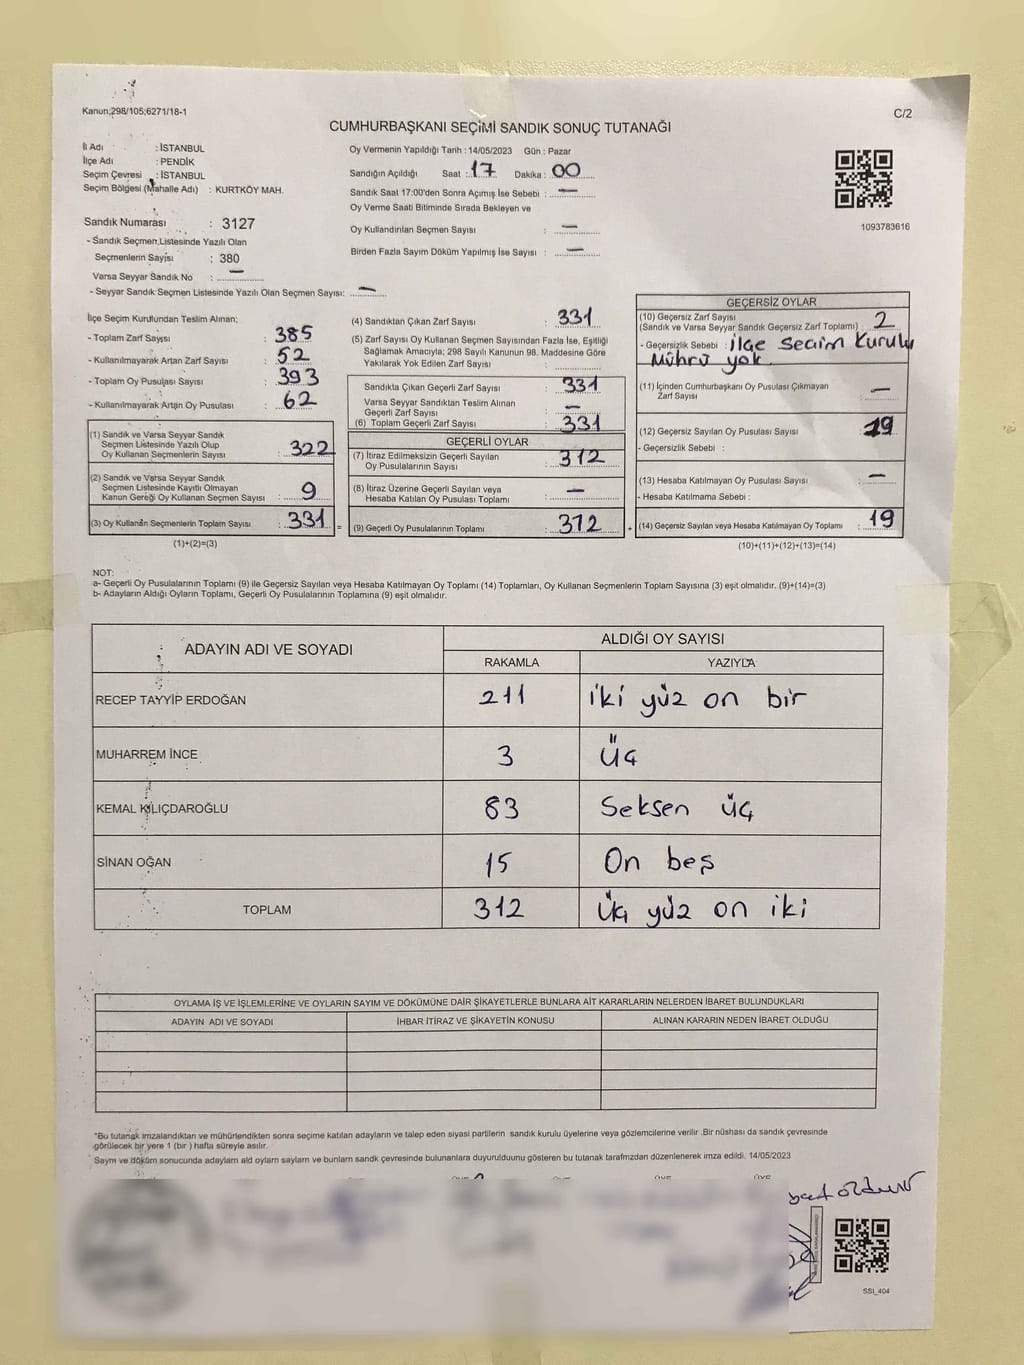 Kanun;298/105;6271/18-1
C/2
CUMHURBAŞKANI SEÇİMİ SANDIK SONUÇ TUTANAĞI
İl Adı : İSTANBUL
İlçe Adı : PENDİK
Seçim Çevresi : İSTANBUL
Seçim Bölgesi (Mahalle Adı) : KURTKÖY MAH.
Sandık Numarası : 3127
- Sandık Seçmen Listesinde Yazılı Olan
Seçmenlerin Sayısı : 380
Varsa Seyyar Sandık No : —
- Seyyar Sandık Seçmen Listesinde Yazılı Olan Seçmen Sayısı: —
Oy Vermenin Yapıldığı Tarih : 14/05/2023 Gün : Pazar
Sandığın Açıldığı Saat : 17 Dakika : 00
Sandık Saat 17:00'den Sonra Açımış İse Sebebi : —
Oy Verme Saati Bitiminde Sırada Bekleyen ve
Oy Kullandırılan Seçmen Sayısı : —
Birden Fazla Sayım Döküm Yapılmış İse Sayısı : —
1093783616
İlçe Seçim Kurulundan Teslim Alınan;
- Toplam Zarf Sayısı : 385
- Kullanılmayarak Artan Zarf Sayısı : 52
- Toplam Oy Pusulası Sayısı : 393
- Kullanılmayarak Artan Oy Pusulası : 62
(1) Sandık ve Varsa Seyyar Sandık
Seçmen Listesinde Yazılı Olup
Oy Kullanan Seçmenlerin Sayısı : 322
(2) Sandık ve Varsa Seyyar Sandık
Seçmen Listesinde Kayıtlı Olmayan
Kanun Gereği Oy Kullanan Seçmen Sayısı : 9
(3) Oy Kullanan Seçmenlerin Toplam Sayısı : 331 =
(1)+(2)=(3)
(4) Sandıktan Çıkan Zarf Sayısı : 331
(5) Zarf Sayısı Oy Kullanan Seçmen Sayısından Fazla İse, Eşitliği
Sağlamak Amacıyla; 298 Sayılı Kanunun 98. Maddesine Göre
Yakılarak Yok Edilen Zarf Sayısı :
Sandıkta Çıkan Geçerli Zarf Sayısı : 331
Varsa Seyyar Sandıktan Teslim Alınan
Geçerli Zarf Sayısı : —
(6) Toplam Geçerli Zarf Sayısı : 331
GEÇERLİ OYLAR
(7) İtiraz Edilmeksizin Geçerli Sayılan
Oy Pusulalarının Sayısı : 312
(8) İtiraz Üzerine Geçerli Sayılan veya
Hesaba Katılan Oy Pusulası Toplamı : —
(9) Geçerli Oy Pusulalarının Toplamı : 312 +
GEÇERSİZ OYLAR
(10) Geçersiz Zarf Sayısı
(Sandık ve Varsa Seyyar Sandık Geçersiz Zarf Toplamı) : 2
- Geçersizlik Sebebi : ilçe Seçim Kurulu
Mührü yok
(11) İçinden Cumhurbaşkanı Oy Pusulası Çıkmayan
Zarf Sayısı : —
(12) Geçersiz Sayılan Oy Pusulası Sayısı : 19
- Geçersizlik Sebebi :
(13) Hesaba Katılmayan Oy Pusulası Sayısı : —
- Hesaba Katılmama Sebebi :
(14) Geçersiz Sayılan veya Hesaba Katılmayan Oy Toplamı : 19
(10)+(11)+(12)+(13)=(14)
NOT:
a- Geçerli Oy Pusulalarının Toplamı (9) ile Geçersiz Sayılan veya Hesaba Katılmayan Oy Toplamı (14) Toplamları, Oy Kullanan Seçmenlerin Toplam Sayısına (3) eşit olmalıdır. (9)+(14)=(3)
b- Adayların Aldığı Oyların Toplamı, Geçerli Oy Pusulalarının Toplamına (9) eşit olmalıdır.
ADAYIN ADI VE SOYADI
ALDIĞI OY SAYISI
RAKAMLA YAZIYLA
RECEP TAYYİP ERDOĞAN 211 iki yüz on bir
MUHARREM İNCE 3 Üç
KEMAL KILIÇDAROĞLU 83 Seksen üç
SİNAN OĞAN 15 On beş
TOPLAM 312 Üç yüz on iki
OYLAMA İŞ VE İŞLEMLERİNE VE OYLARIN SAYIM VE DÖKÜMÜNE DAİR ŞİKAYETLERLE BUNLARA AİT KARARLARIN NELERDEN İBARET BULUNDUKLARI
ADAYIN ADI VE SOYADI İHBAR İTİRAZ VE ŞİKAYETİN KONUSU ALINAN KARARIN NEDEN İBARET OLDUĞU
*Bu tutanak imzalandıktan ve mühürlendikten sonra seçime katılan adayların ve talep eden siyasi partilerin sandık kurulu üyelerine veya gözlemcilerine verilir .Bir nüshası da sandık çevresinde
görülecek bir yere 1 (bir ) hafta süreyle asılır.
Sayım ve döküm sonucunda adaylarn ald oylarn saylarn ve bunlarn sandk çevresinde bulunanlara duyurulduunu gösteren bu tutanak tarafmzdan düzenlenerek imza edildi. 14/05/2023
SSI_404